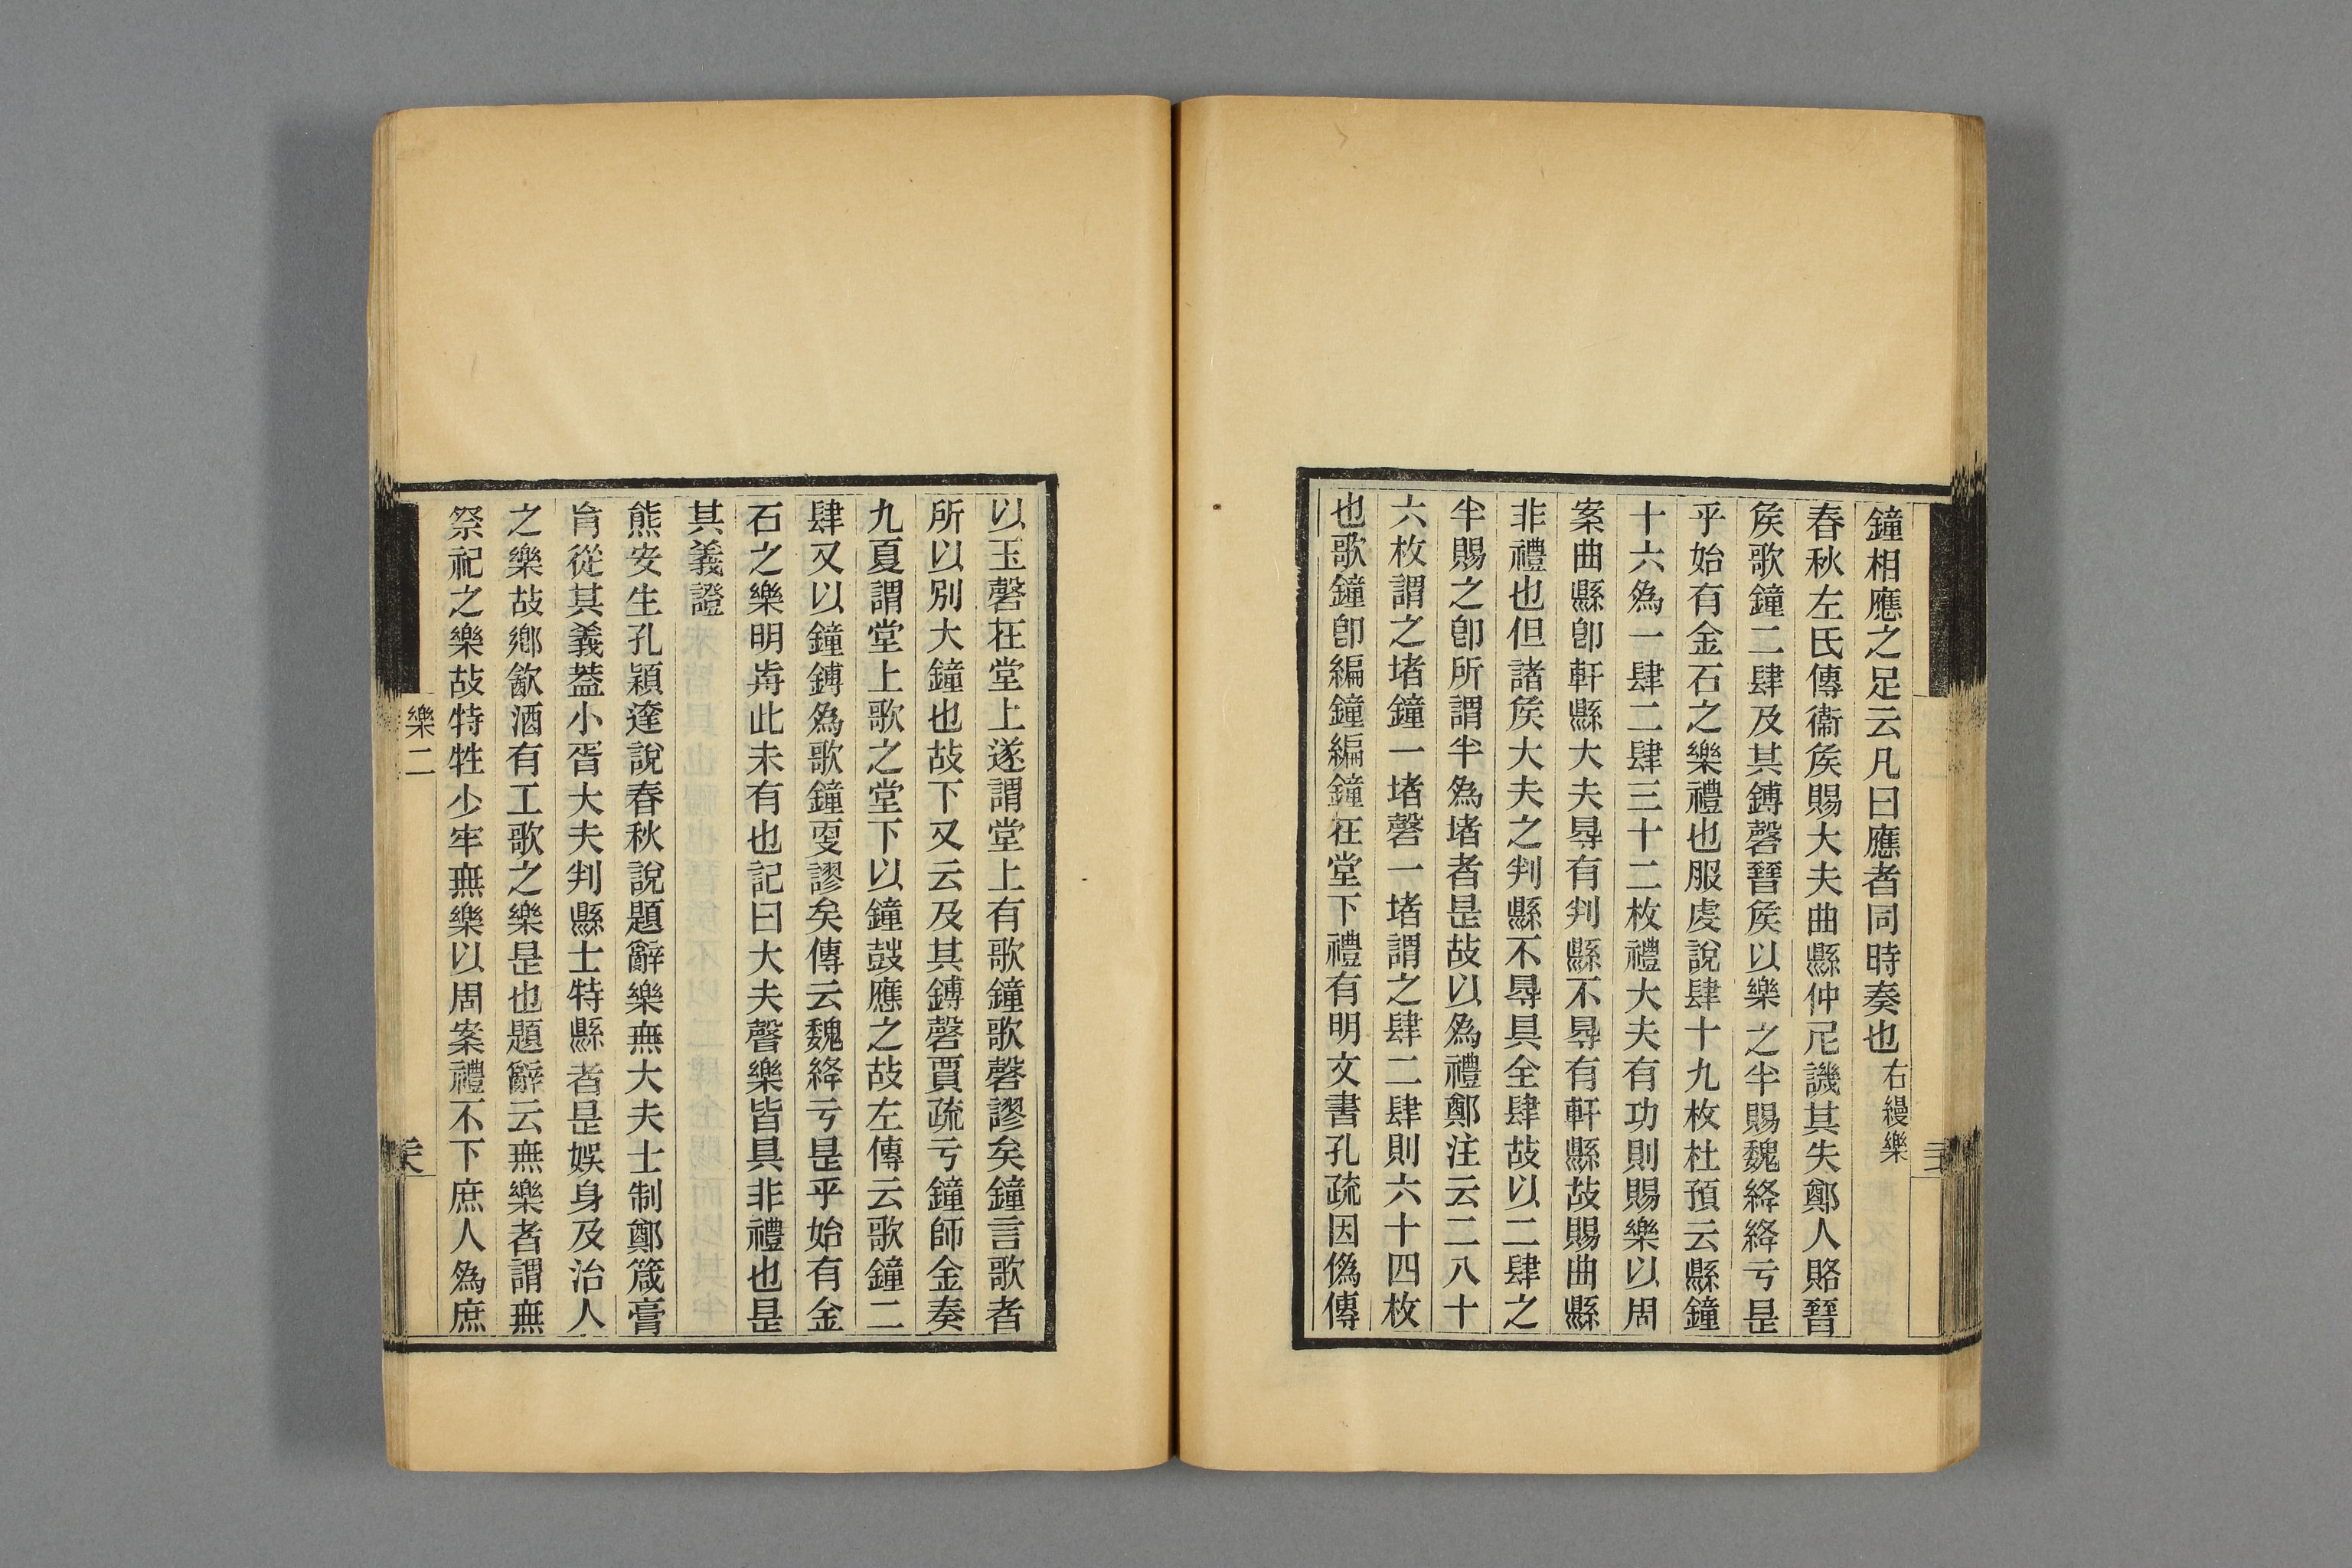 鐘相應之足云凡曰應者同時奏也右縵樂
春秋左氏傳衞矦賜大夫曲縣仲尼譏其失鄭人賂晉
矦歌鐘二肆及其鎛磬晉矦以樂之半賜魏絳絳亏是
乎始有金石之樂禮也服虔說肆十九枚杜預云縣鐘
十六為一肆二肆三十二枚禮大夫有功則賜樂以周
案曲縣卽軒縣大夫㝵有判縣不㝵有軒縣故賜曲縣
非禮也但諸矦大夫之判縣不㝵具全肆故以二肆之
半賜之卽所謂半為堵者是故以為禮鄭注云二八十
六枚謂之堵鐘一堵磬一堵謂之肆二肆則六十四枚
也歌鐘卽編鐘編鐘在堂下禮有明文書孔疏因僞傳
以玉磬在堂上遂謂堂上有歌鐘歌磬謬矣鐘言歌者
所以別大鐘也故下又云及其鎛磬賈疏亏鐘師金奏
九夏謂堂上歌之堂下以鐘鼓應之故左傳云歌鐘二
肆又以鐘鎛為歌鐘叓謬矣傳云魏絳亏是乎始有金
石之樂明歬此未有也記曰大夫聲樂皆具非禮也是
其義證
熊安生孔穎達說春秋說題辭樂無大夫士制鄭箴膏
肓從其義葢小胥大夫判縣士特縣者是娛身及治人
之樂故鄉飲酒有工歌之樂是也題辭云無樂者謂無
祭祀之樂故特牲少牢無樂以周案禮不下庶人為庶
樂二